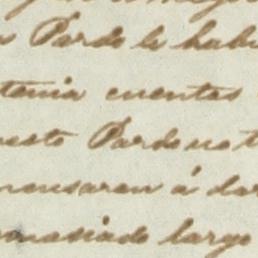 Pardo le habi
tenia cuentas
uesto Pardo no t
mensaran á dar
masiado largo